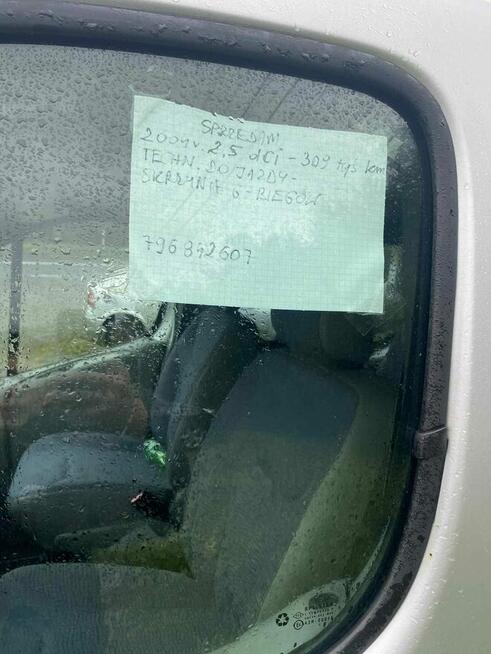 SPRZEDAM
2001r. 2,5 dCi - 309 tyś km
TECHN. DO JAZDY-
SKRZYNIE 6-BIEGÓW
796842607